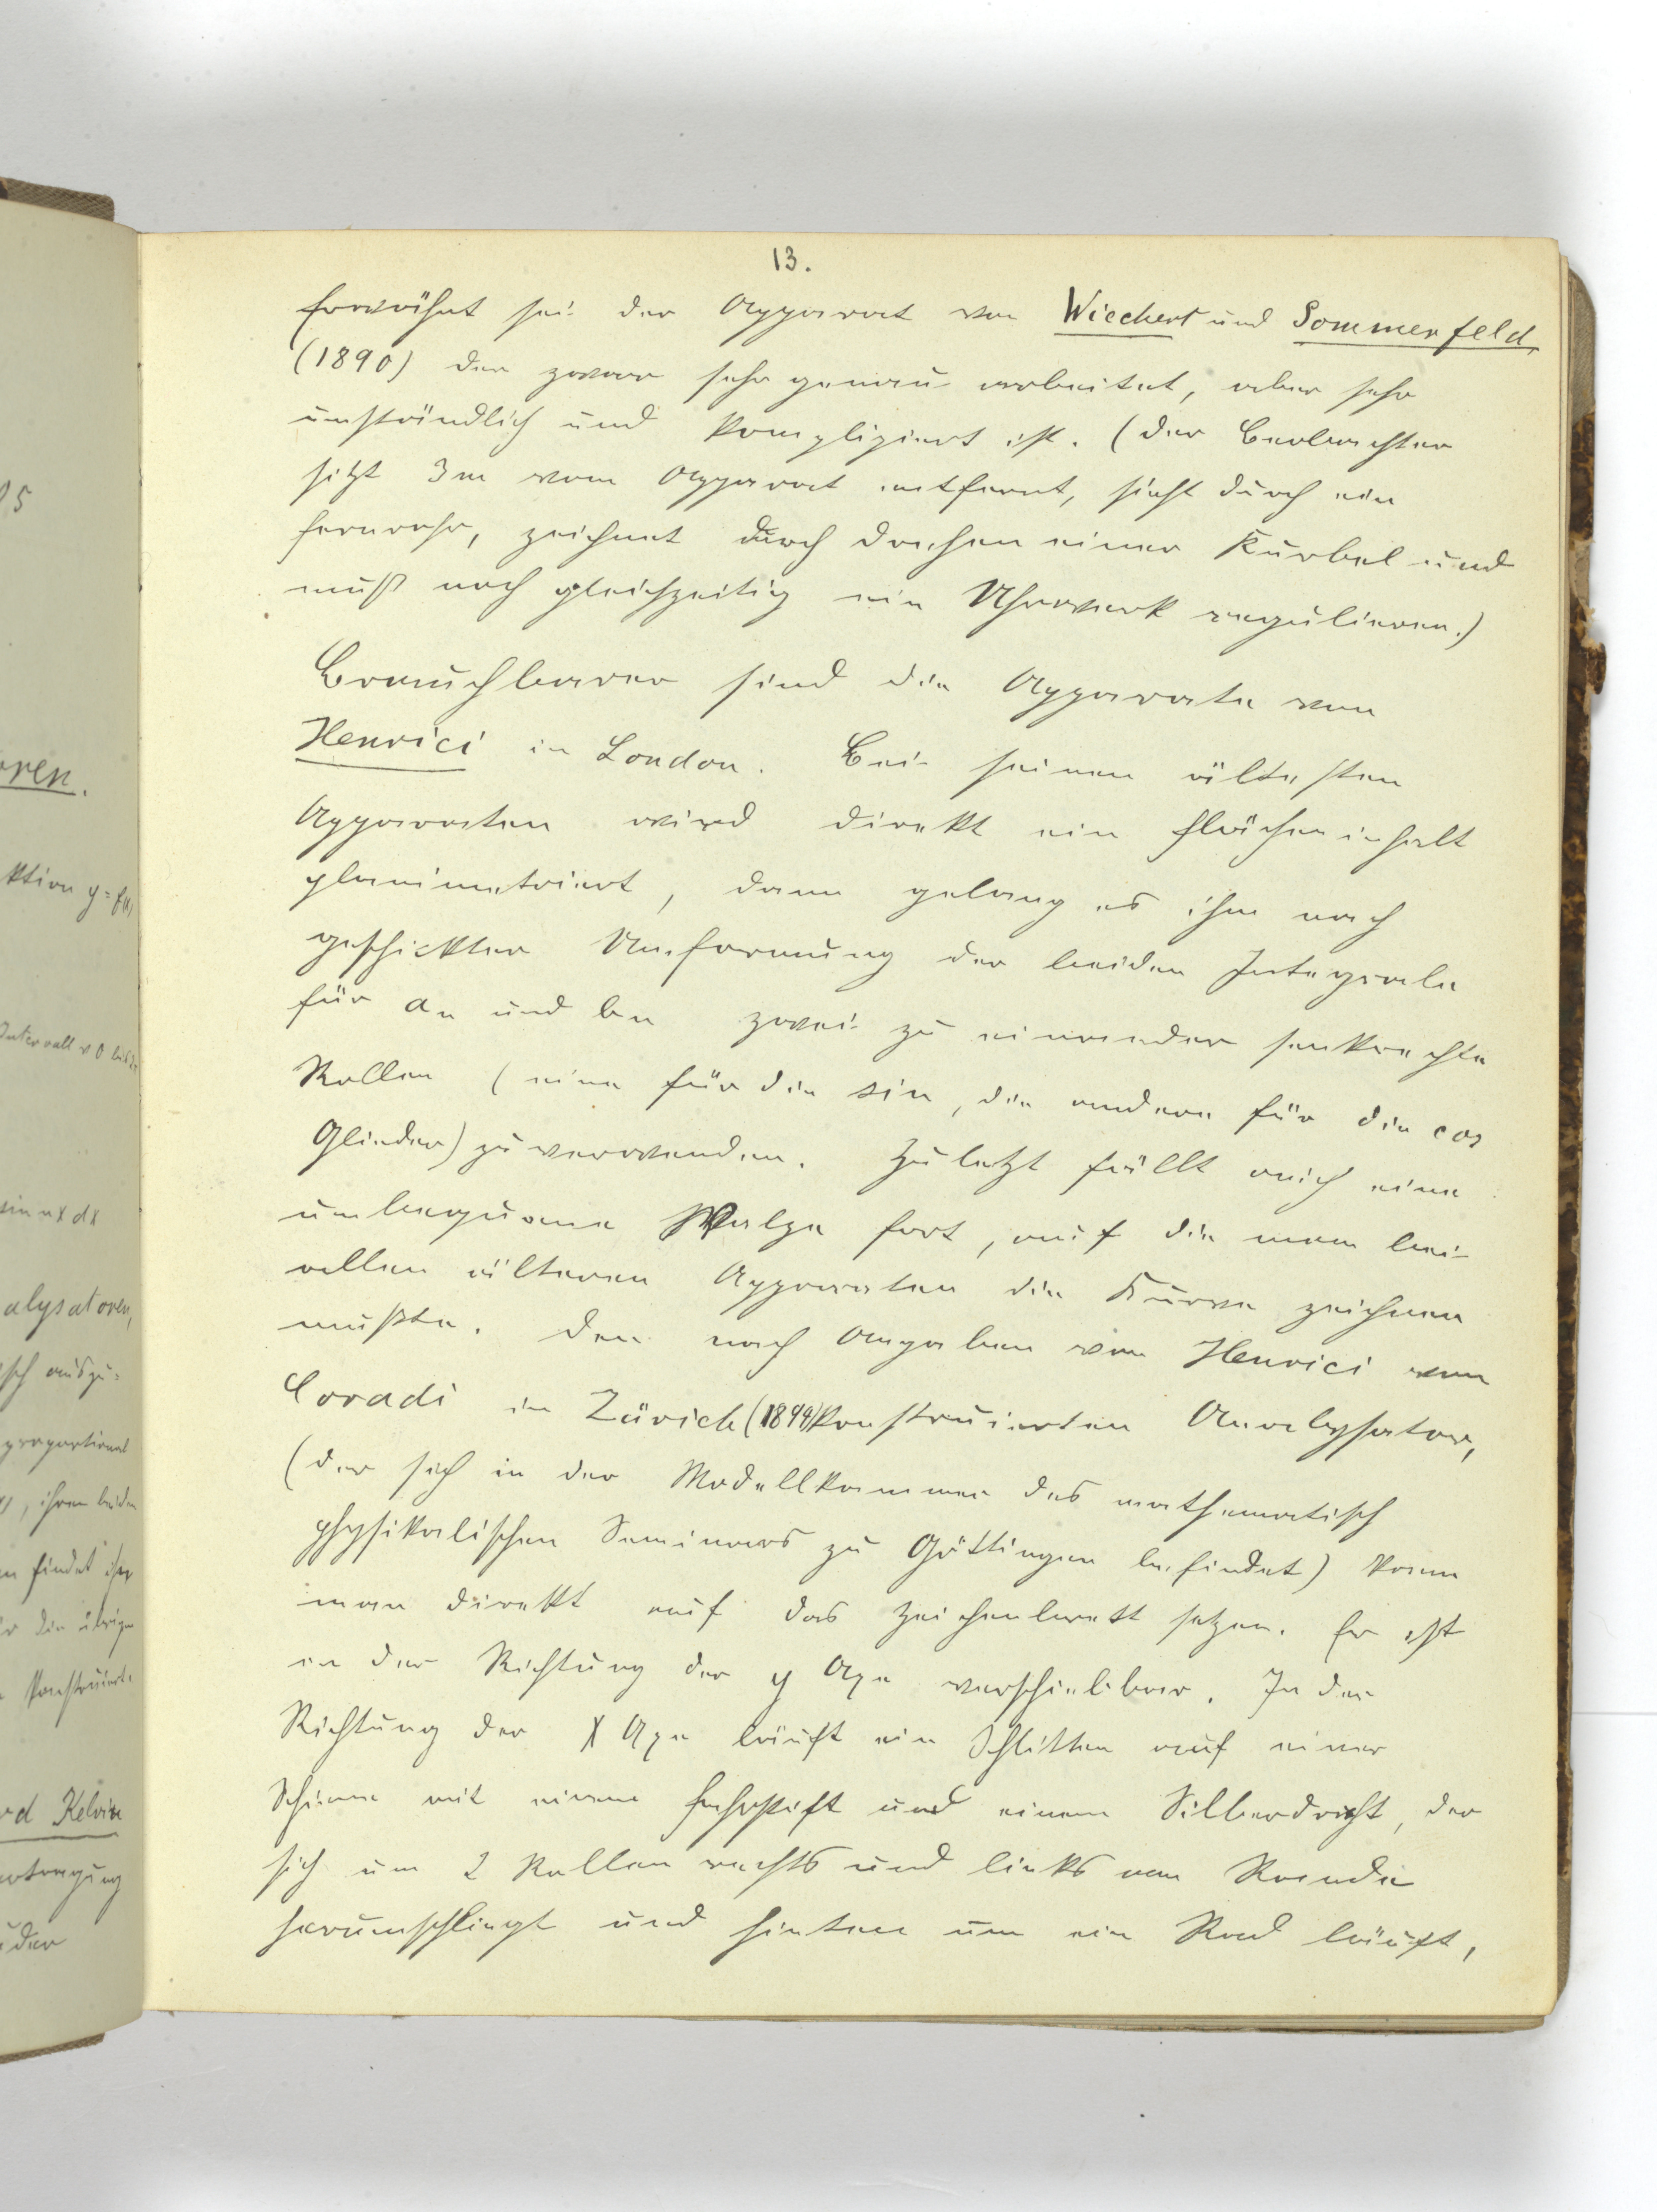 13.
Erwähnt sei der Apparat von Wiechert und Sommerfeld
(1890) der zwar sehr genau arbeitet, aber sehr
umständlich und kompliziert ist. (Der Beobachter
sitzt 3m vom Apparat entfernt, sieht durch ein
Fernrohr, zeichnet durch Drehen einer Kurbel und
muß noch gleichzeitig ein Uhrwerk regulieren.)
Brauchbarer sind die Apparate von
Henrici in London. Bei seinen ältesten
Apparaten wird direkt ein Flächeninhalt
planimetriert, dann gelang es ihm nach
geschickter Umformung der beiden Integrale
für an und bn zwei zu einander senkrechte
Rollen (eine für die sin, die andere für die cos
Glieder) zu verwenden. Zuletzt fällt auch eine
unbequeme Walze fort, auf die man bei
allen älteren Apparaten die Kurve zeichnen
mußte. Den nach Angaben von Henrici von
Coradi in Zürich (1894) konstruierten Analysator,
(der sich in der Modellkammer des mathematisch
physikalischen Seminars zu Göttingen befindet) kann
man direkt auf das Zeichenbrett setzen. Er ist
in der Richtung der y Axe verschiebbar. In der
Richtung der X Axe läuft ein Schlitten auf einer
Schiene mit einem Fahrstift und einem Silberdraht, der
sich um 2 Rollen rechts und links am Rande
herumschlingt und hinten um ein Rad läuft,
15
oren.
ktion y = f(x)
Intervall v 0 bis
sin nx dx
alysatoren,
sch auszu-
proportional
, ihren beiden
n findet
r die übrigen
konstruierte
rd Kelvin
ertragung